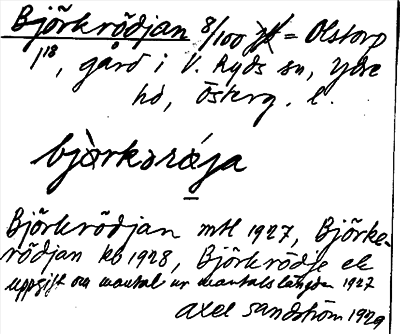 Björkrödjan 8/100 = Olstorp
1¹⁸, gård i V. Ryds sn, Ydre
hd, Österg. l.
bjòrkərǿja
Björkrödjan mtl 1927, Björke-
rödjan kb 1928, Björkrödje ek
uppgift om mantal ur mantalslängden 1927
Axel Sandström 1929